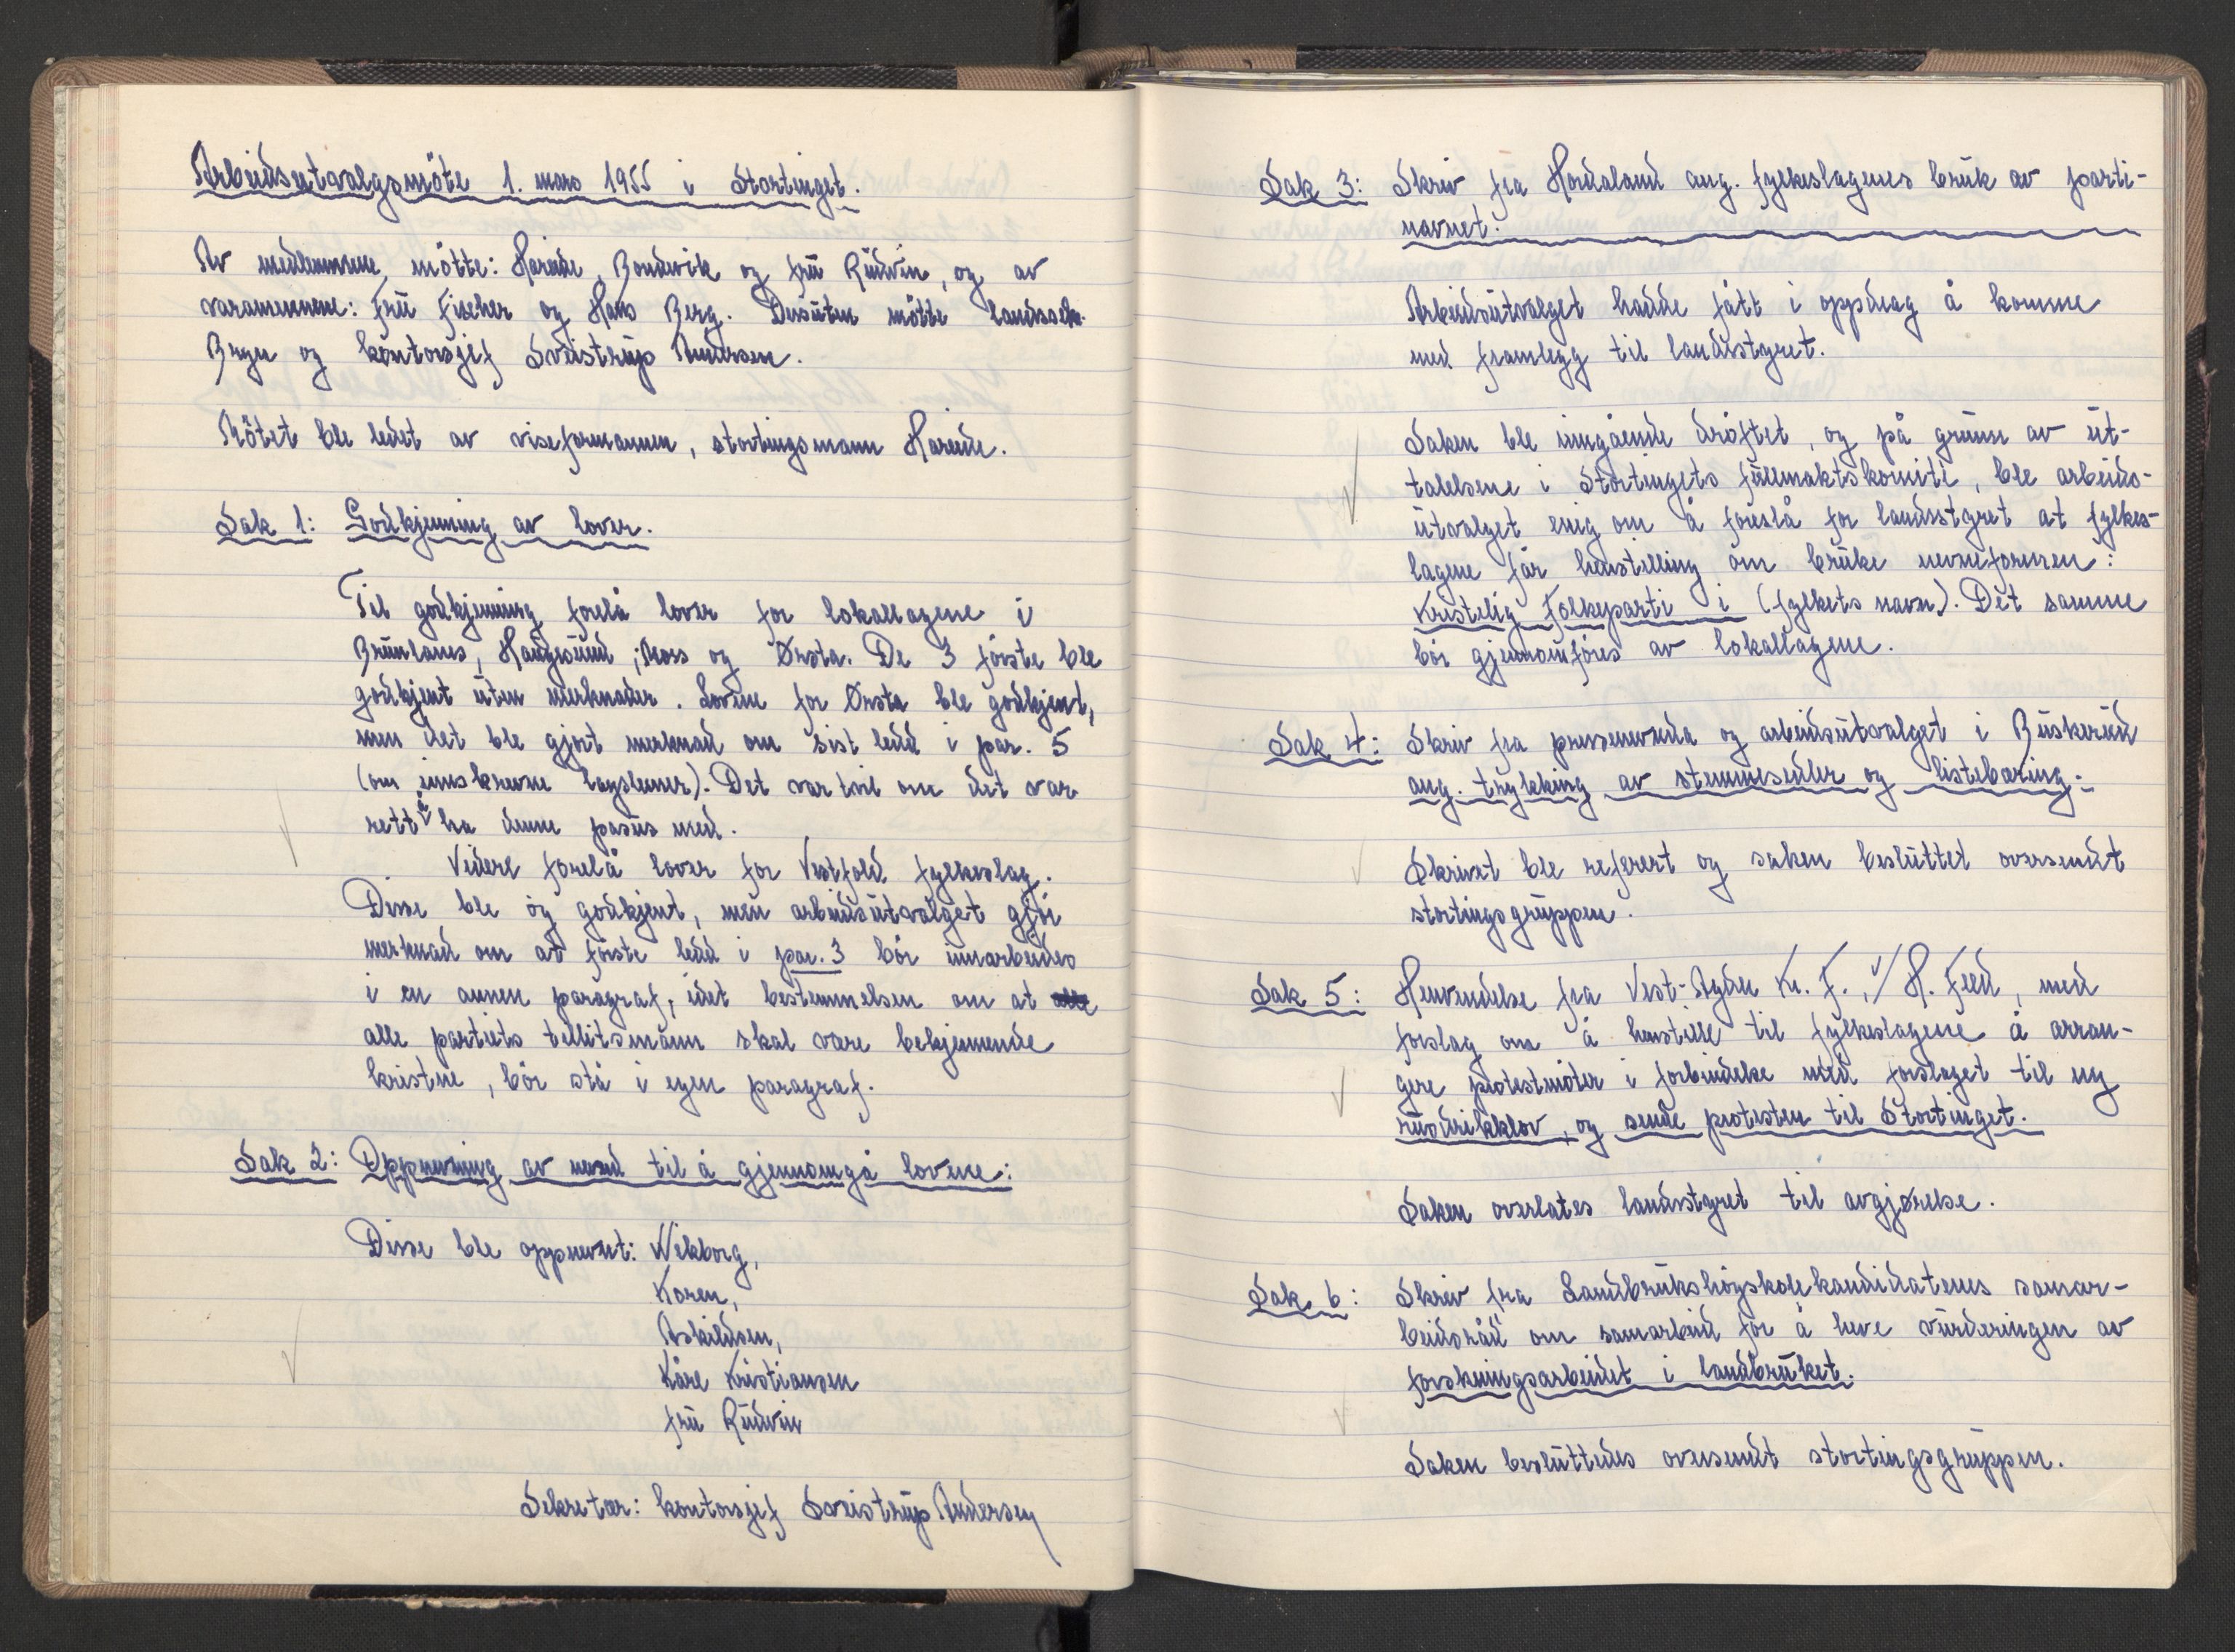 Arbeidsutvalgsmöte 1. mars 1955 i Stortinget.
Av medlemmene mötte: Hareide, Bondevik og frü Rüdvin, og av
varamennene: Frü Fischer og Hans Berg. Dessüten mötte landssekr.
Bryn og kontorsjef Sveistrüp Andersen.
Mötet ble ledet av viseformannen, stortingsmann Hareide.
Sak 1: Godkjenning av lover.
Til godkjenning forelå lover for lokallagene i
Brünlanes, Haugesünd, Moss og Ørsta. De 3 förste ble
godkjent üten merknader. Lovene for Ørsta ble godkjent,
men det ble gjort merknad om sist ledd i par. 5
(om innskrevne lagslemer). Det var tvil om det var
rett å ha denne passüs med.
Videre forelå lover for Vestfold fylkeslag.
Disse ble òg godkjent, men arbeidsütvalget gjör
merknad om at förste ledd i par. 3 bör innarbeides
i en annen paragraf, idet bestemmelsen om at alle
alle partiets tillitsmenn skal være bekjennende
kristne, bör stå i egen paragraf.
Sak 2: Oppnevning av nevnd til å gjennomgå lovene:
Disse ble oppnevnt: Wikborg,
Koren,
Askildsen,
Kåre Kristiansen
frü Rüdvin
Sekretær: kontorsjef Sveistrüp Andersen
Sak 3: Skriv fra Hordaland ang. fylkeslagenes brük av parti-
navnet.
Arbeidsütvalget hadde fått i oppdrag å komme
med framlegg til landsstyret.
Saken ble inngående dröftet, og på grünn av üt-
talelsene i Stortingets füllmaktskomité, ble arbeids-
ütvalget enig om å foreslå for landsstyret at fylkes-
lagene får henstilling om brüke nevneformen:
Kristelig Folkeparti i (fylkets navn). Det samme
bör gjennomföres av lokallagene.
Sak 4: Skriv fra pressenevnda og arbeidsütvalget i Büskerüd
ang. trykking av stemmesedler og listebæring.
Skrivet ble referert og saken beslüttet oversendt
stortingsgrüppen.
Sak 5: Henvendelse fra Vest-Agder Kr. F., v/ H. Feed, med
forslag om å henstille til fylkeslagene å arran-
gere protestmöter i forbindelse med forslaget til ny
rüsdrikklov, og sende protesten til Stortinget.
Saken overlates landsstyret til avgjørelse.
Sak 6: Skriv fra Landbrükshögskolekandidatenes samar-
beidsråd om samarbeid for å heve vürderingen av
forskningsarbeidet i landbrüket.
Saken beslüttedes oversendt stortingsgrüppen.